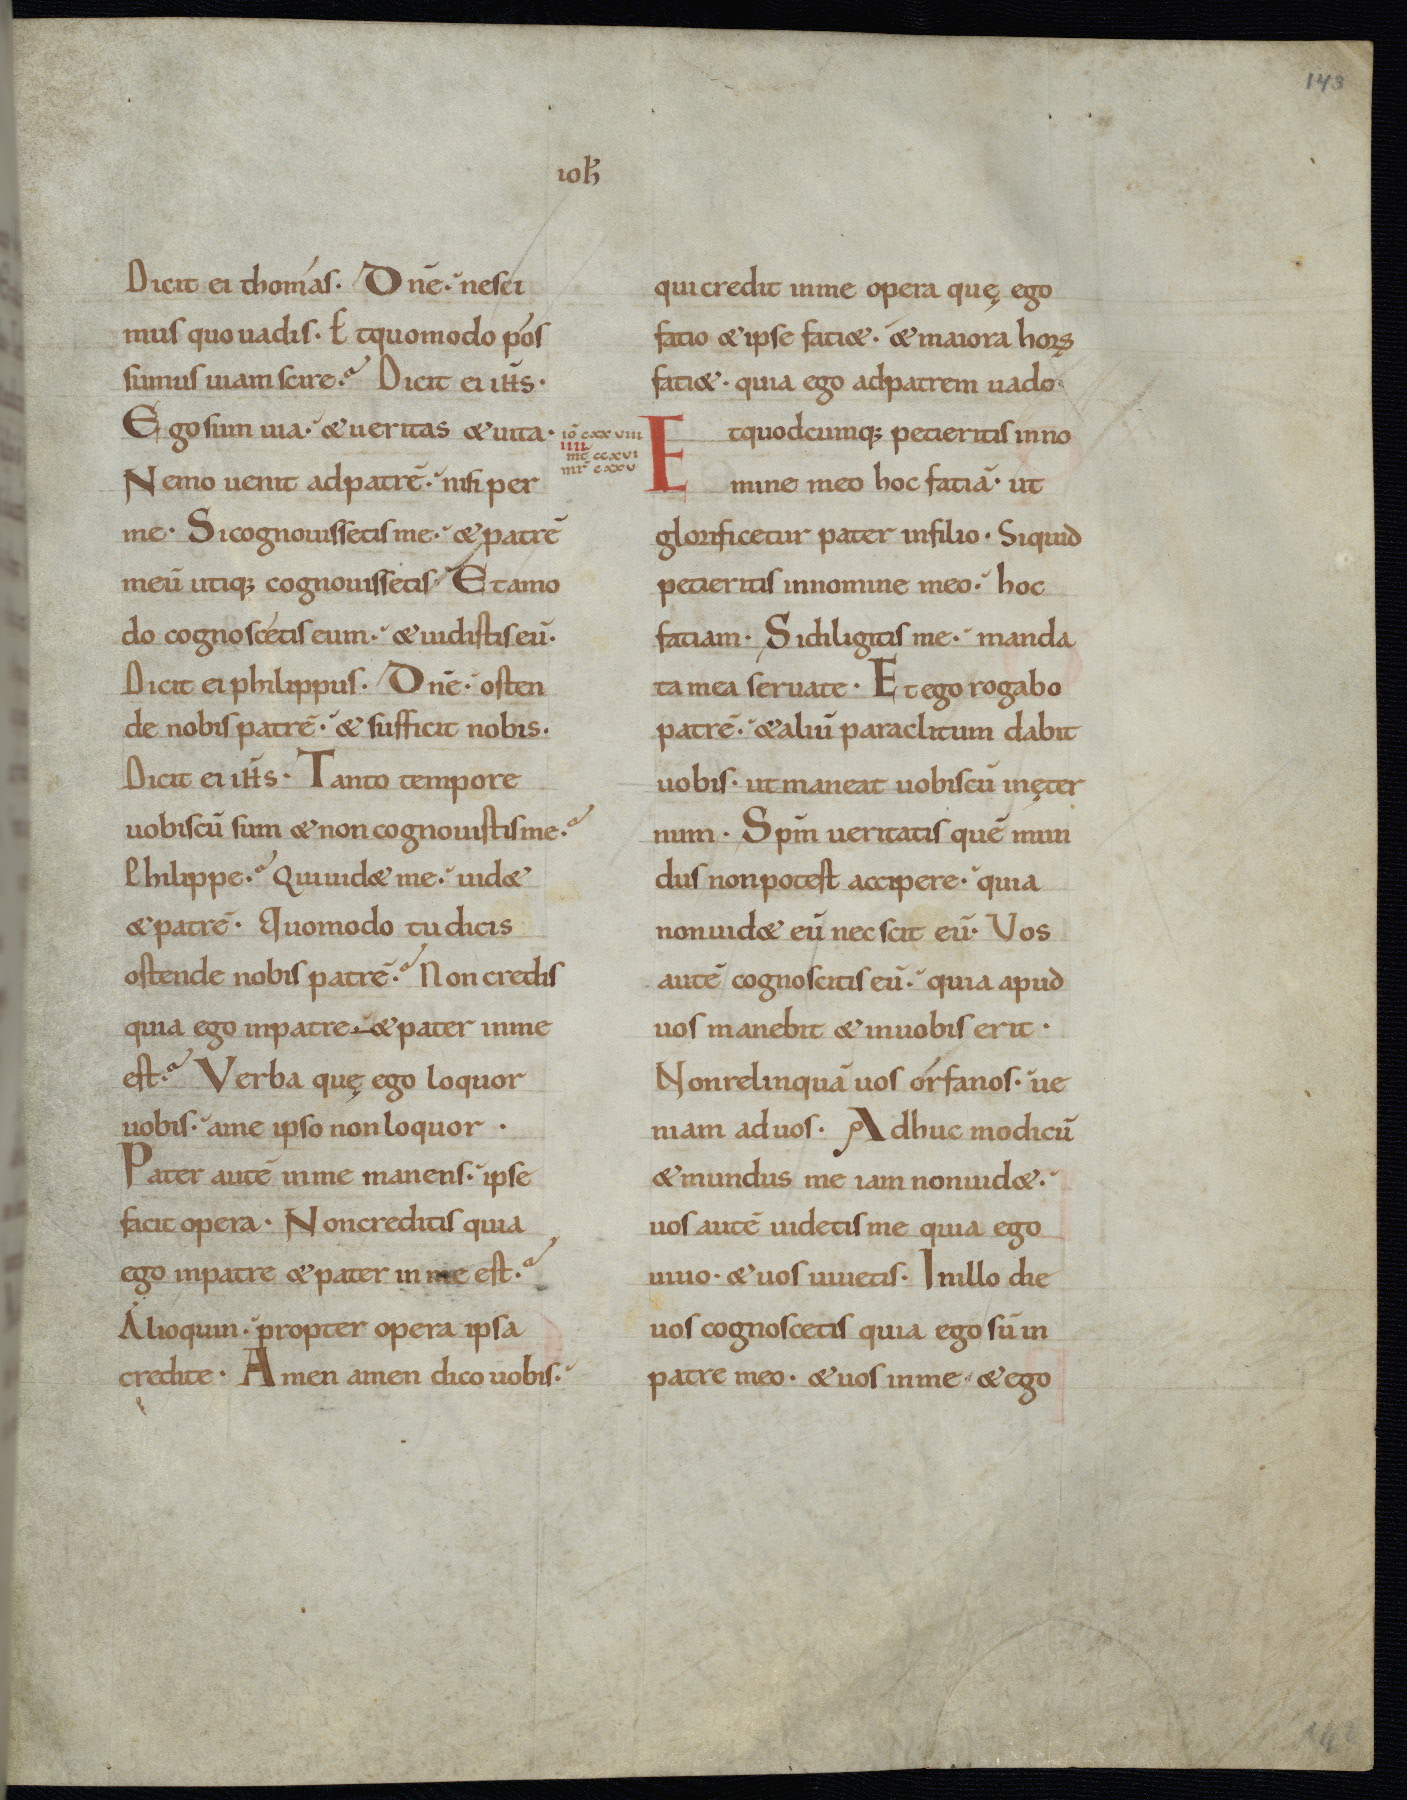 143
ioh̅
Dicit ei thomás. Dn̄e. nesci
mus quo uadis. Et quomodo pós
sumus uiam scire. Dicit ei ih̅s.
Ego sum uia. & ueritas & uita.
Nemo uenit ad patrē. nisi per
me. Si cognouissetis me. & patrē
meū utiq; cognouissetis. Et amo
do cognoscétis eum. & uidistis eū.
Dicit ei philippus. Dn̄e. osten
de nobis patrē. & sufficit nobis.
Dicit ei ih̅s. Tanto tempore
uobiscū sum & non cognouistis me.
Philippe. Qui uid& me. uid&
& patrē. Quomodo tu dicis
ostende nobis patrē. Non credis
quia ego in patre. & pater in me
est. Verba quę ego loquor
uobis. a me ipso non loquor.
Pater autē in me manens. ipse
facit opera. Non creditis quia
ego in patre & pater in me est.
Alioquin. propter opera ipsa
credite. Amen amen dico uobis.
iō cxxviii
iiii
mt̄ ccxvi
mr̄ cxxv
qui credit in me opera quę ego
fatio & ipse fati&. & maiora horꝝ
fati&. quia ego ad patrem uado.
Et quodcumq; petieritis in no
mine meo hoc fatiā. ut
glorificetur pater in filio. Siquid
petieritis in nomine meo. hoc
fatiam. Si diligitis me. manda
ta mea seruate. Et ego rogabo
patrē. & aliū paraclitum dabit
uobis. ut maneat uobiscū in ęter
num. Sp̄m ueritatis quē mun
dus non potest accipere. quia
non uid& eū nec scit eū. Vos
autē cognoscitis eū. quia apud
uos manebit & in uobis erit.
Non relinquā uos órfanos. ue
niam ad uos. Adhuc modicū
& mundus me iam non uid&.
uos autē uidetis me quia ego
uiuo. & uos uiuetis. In illo die
uos cognoscetis quia ego sū in
patre meo. & uos in me. & ego